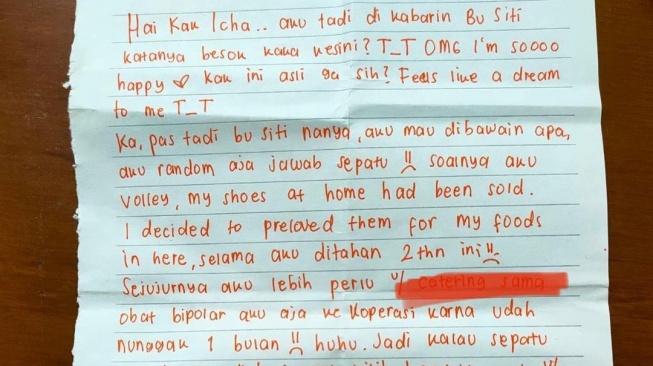 Hai Kak Icha.. aku tadi di kabarin Bu Siti
katanya besok kaka kesini? T_T OMG I'm soooo
happy ♡ Kak ini asli ga sih? Feels like a dream
to me T_T
Ka, pas tadi bu siti nanya, aku mau dibawain apa,
aku random aja jawab sepatu !! soalnya aku
volley, my shoes at home had been sold.
I decided to preloved them for my foods
in here, selama aku ditahan 2thn ini !!
Sejujurnya aku lebih perlu u/ catering sama
obat bipolar aku aja ke Koperasi karna udah
nunggak 1 bulan !! huhu. Jadi kalau sepatu